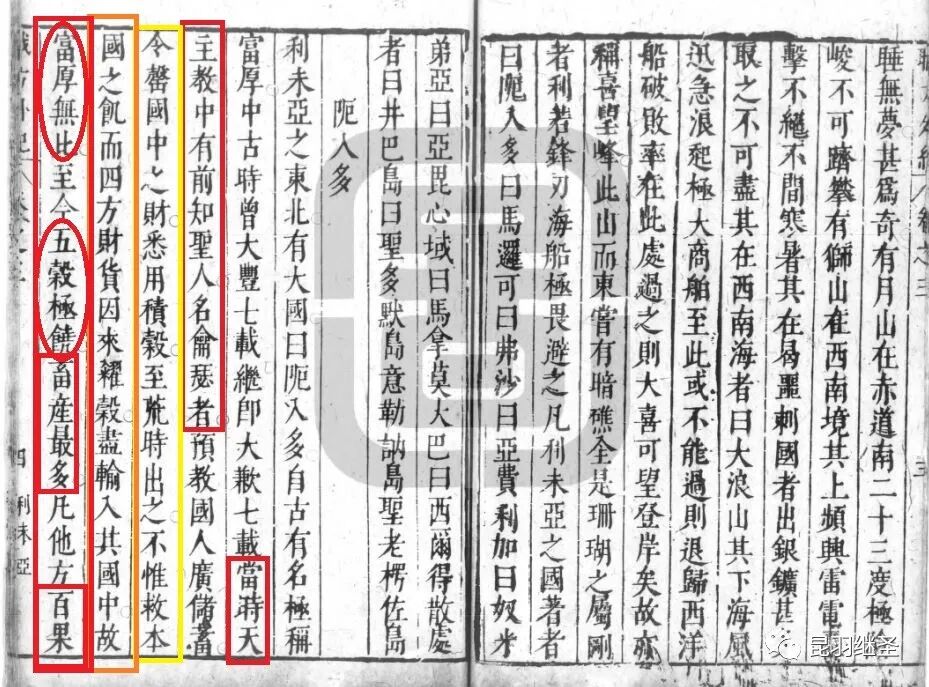 睡無夢甚爲奇有月山在赤道南二十三度極
峻不可躋攀有獅山在西南境其上頻興雷電
擊不絕不間寒暑其在曷噩剌國者出銀鑛甚
取之不可盡其在西南海者曰大浪山其下海風
迅急浪起極大商舶至此或不能過則退歸西洋
船破敗率在此處過之則大喜可望登岸矣故亦
稱喜望峰此山而東嘗有暗礁全是珊瑚之屬剛
者利若鋒刃海船極畏避之凡利未亞之國著者
曰阨入多曰馬邏可曰弗沙曰亞費利加曰奴米
弟亞曰亞毘心域曰馬拿莫大巴曰西爾得散處
者曰井巴島曰聖多默島意勒訥島聖老楞佐島
阨入多
利未亞之東北有大國曰阨入多自古有名極稱
富厚中古時曾大豐七載繼卽大歉七載當時天
主教中有前知聖人名龠瑟者預教國人廣儲蓄
令罄國中之財悉用積穀至荒時出之不惟救本
國之飢而四方財貨因來糴穀盡輸入其國中故
富厚無比至今五穀極饒畜產最多凡他方百果
四
利未亞
昆羽继圣